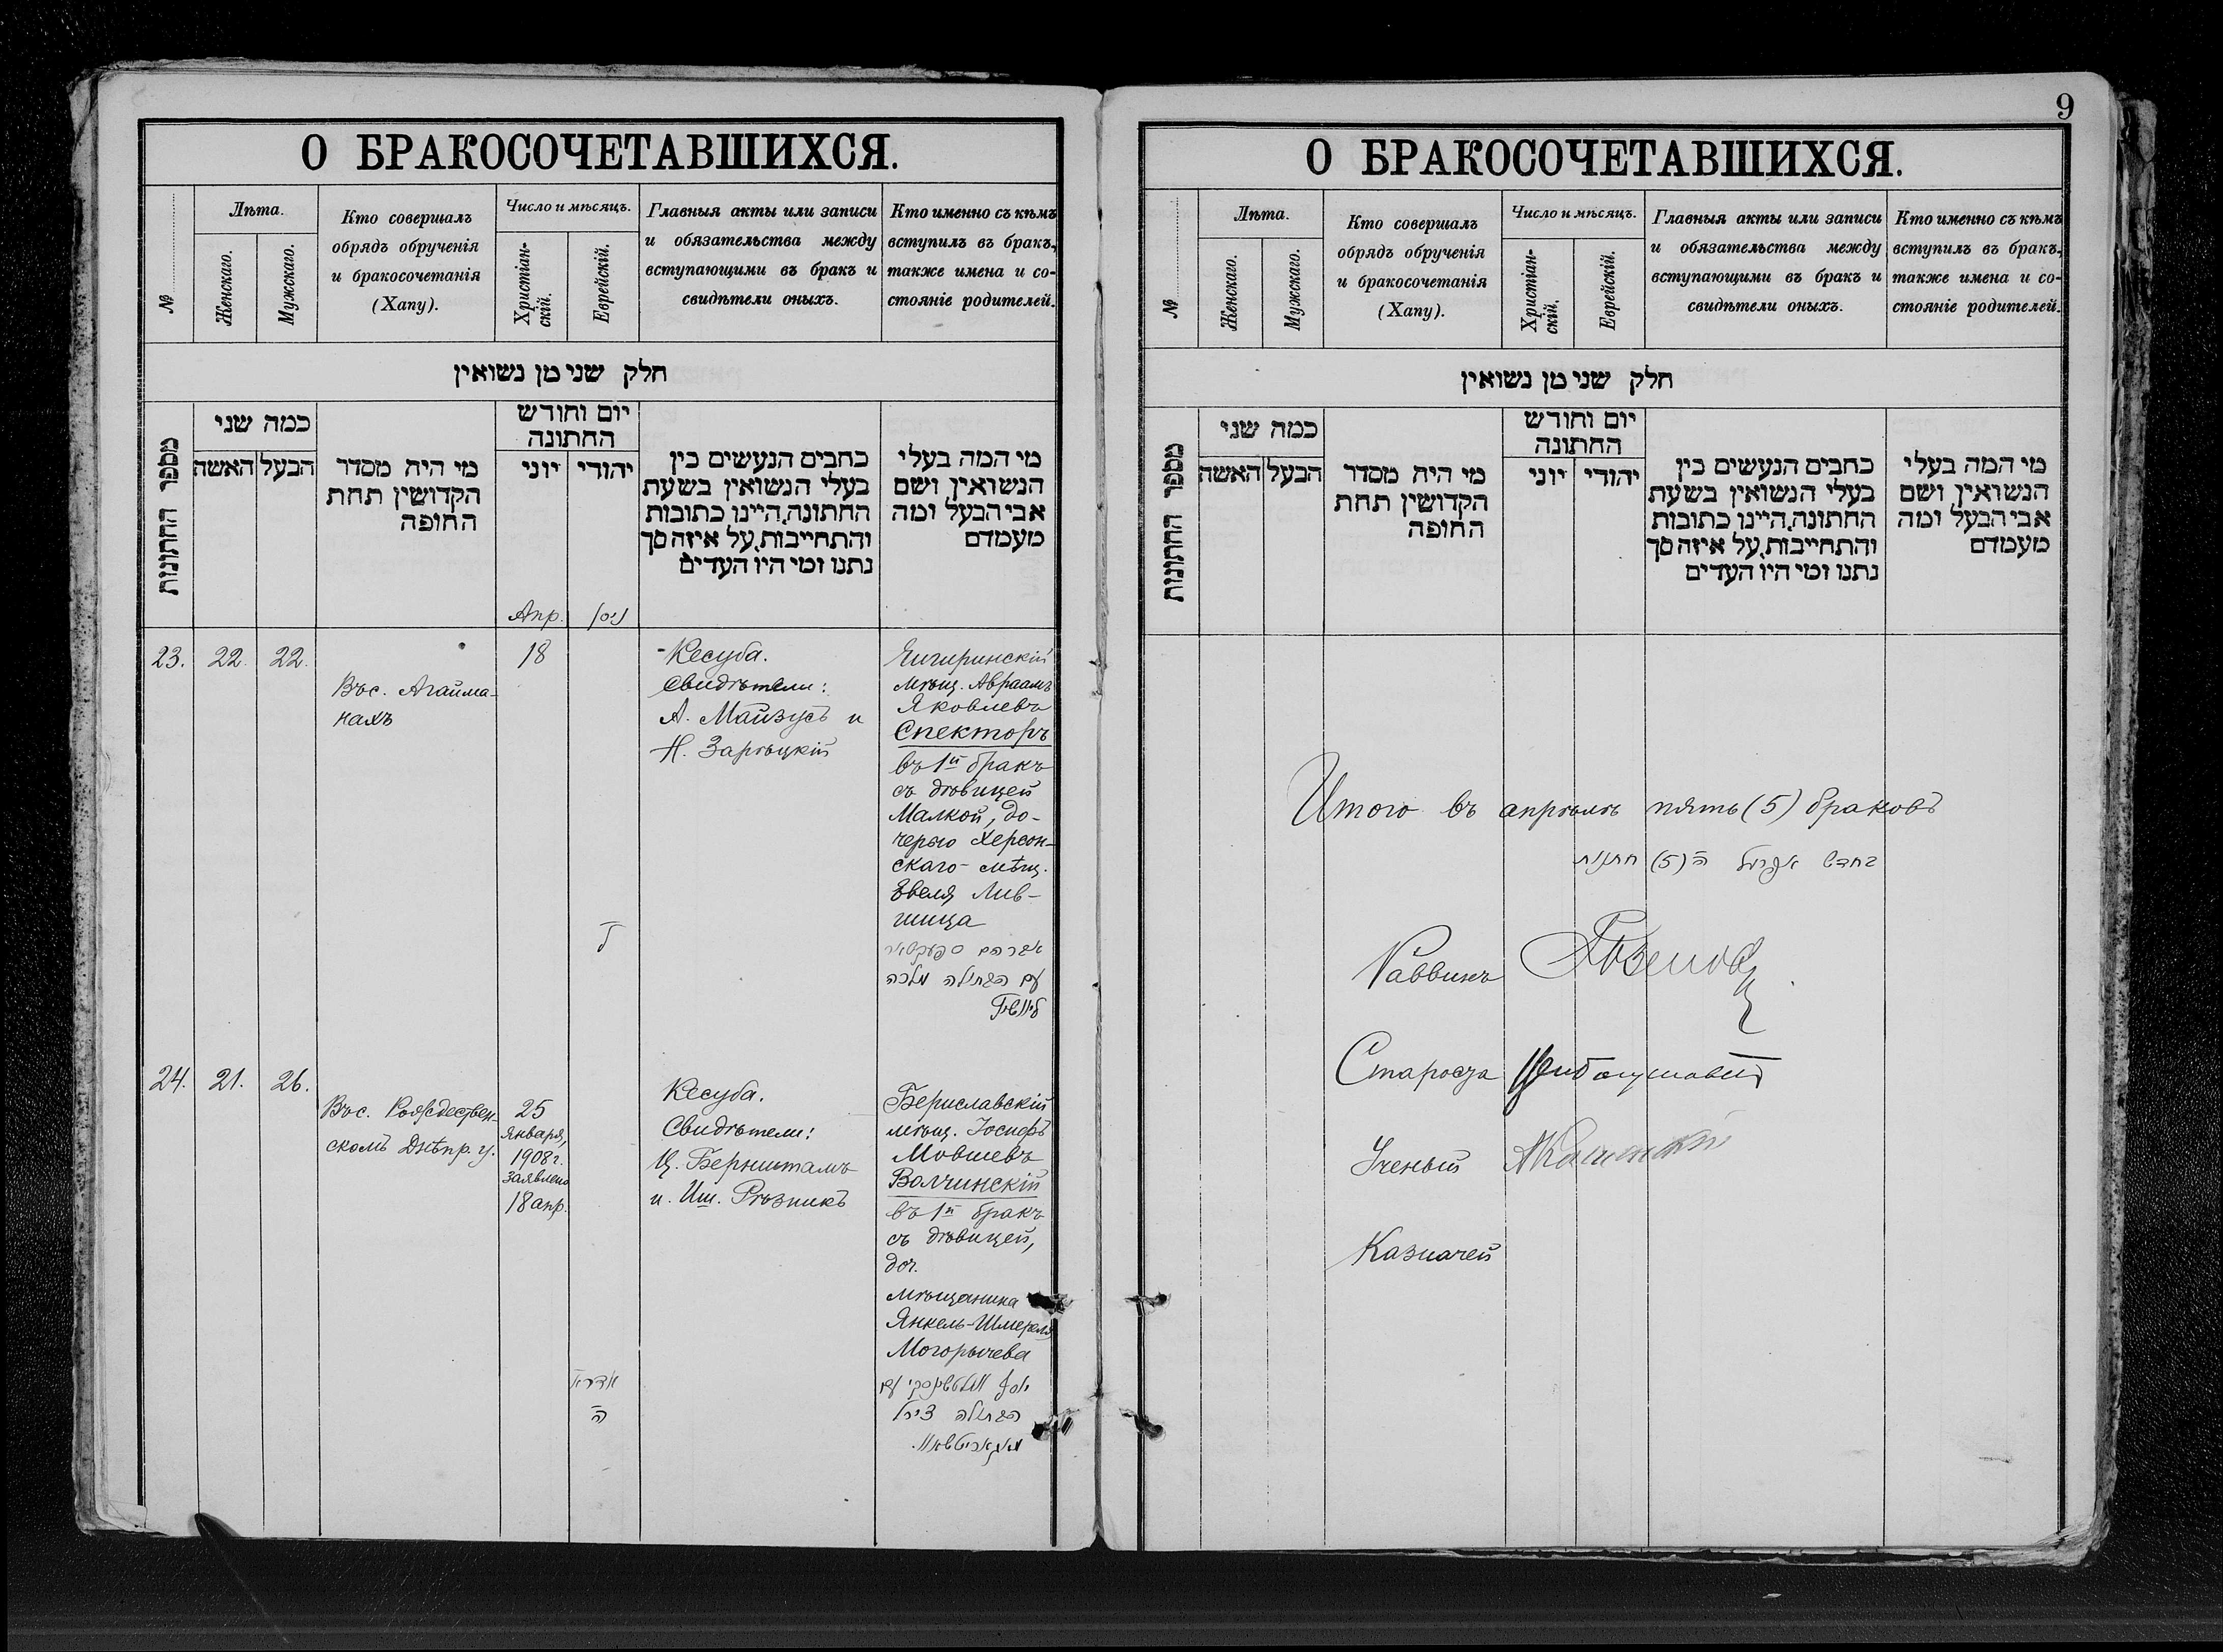 О БРАКОСОЧЕТАВШИХСЯ.
№
Лѣта.
Женскаго.
Мужскаго.
Кто совершалъ
обрядъ обрученія
и бракосочетанія
(Хапу).
Число и мѣсяцъ.
Христіан-
скій.
Еврейскій.
Главныя акты или записи
и обязательства между
вступающими въ бракъ и
свидѣтели оныхъ.
Кто именно съ кѣмъ
вступилъ въ бракъ,
также имена и со-
стояніе родителей.
חלק שני מן נשואין
מספר החתונות
כמה שני
הבעל האשה
מי היה מסדר
הקדושין תחת
החופה
יום וחודש
החתונה
יהודי
יוני
כתבים הנעשים בין
בעלי הנשואין בשעת
החתונה, היינו כתובות
והתחייבות, על איזה סך
נתנו ומי היו העדים
מי המה בעלי
הנשואין ושם
אבי הבעל ומה
מעמדם
Апр.
ניסן
23. 22. 22.
Въ с. Агайма-
нахъ
18
ל
Кесуба.
Свидѣтели:
А. Майзусъ и
Н. Зарѣцкій
Чигиринскій
мѣщ. Авраамъ
Яковлевъ
Спекторъ
въ 1й бракъ
съ дѣвицей
Малкой, до-
черью Херсон-
скаго мѣщ.
Эвеля Лив-
шица
אברהם ספעקטאר
עם הבתולה מלכה
ליוושיץ
24. 21. 26.
Въ с. Рождествен-
скомъ Днѣпр. у.
25
Января,
1908 г.
заявлено
18 апр.
אדר א
ה
Кесуба.
Свидѣтели:
Ц. Бернштамъ
и Иш. Рѣзникъ
Бериславскій
мѣщ. Іосифъ
Мовшевъ
Волчинскій
въ 1й бракъ
съ дѣвицей,
доч.
мѣщанина
Янкель-Шмереля
Могорычева
יוסף וואלטשינסקי עם
הבתולה צירל
מאגאריטשאוו.
9
О БРАКОСОЧЕТАВШИХСЯ.
№
Лѣта.
Женскаго.
Мужскаго.
Кто совершалъ
обрядъ обрученія
и бракосочетанія
(Хапу).
Число и мѣсяцъ.
Христіан-
скій.
Еврейскій.
Главныя акты или записи
и обязательства между
вступающими въ бракъ и
свидѣтели оныхъ.
Кто именно съ кѣмъ
вступилъ въ бракъ,
также имена и со-
стояніе родителей.
חלק שני מן נשואין
מספר החתונות
כמה שני
הבעל האשה
מי היה מסדר
הקדושין תחת
החופה
יום וחודש
החתונה
יהודי
יוני
כתבים הנעשים בין
בעלי הנשואין בשעת
החתונה, היינו כתובות
והתחייבות, על איזה סך
נתנו ומי היו העדים
מי המה בעלי
הנשואין ושם
אבי הבעל ומה
מעמדם
Итого въ апрѣлѣ пять (5) браковъ
בחדש אפריל ה (5) חתונות
Раввинъ
Староста
Ученый
Казначей